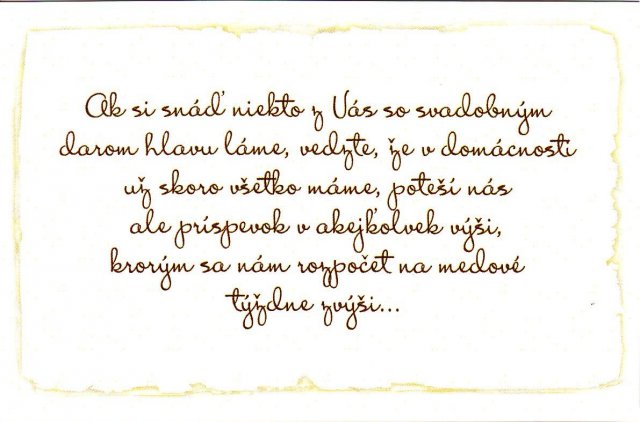 Ak si snáď niekto z Vás so svadobným
darom hlavu láme, vedzte, že v domácnosti
už skoro všetko máme, poteší nás
ale príspevok v akejkoľvek výši,
krorým sa nám rozpočet na medové
týždne zvýši...